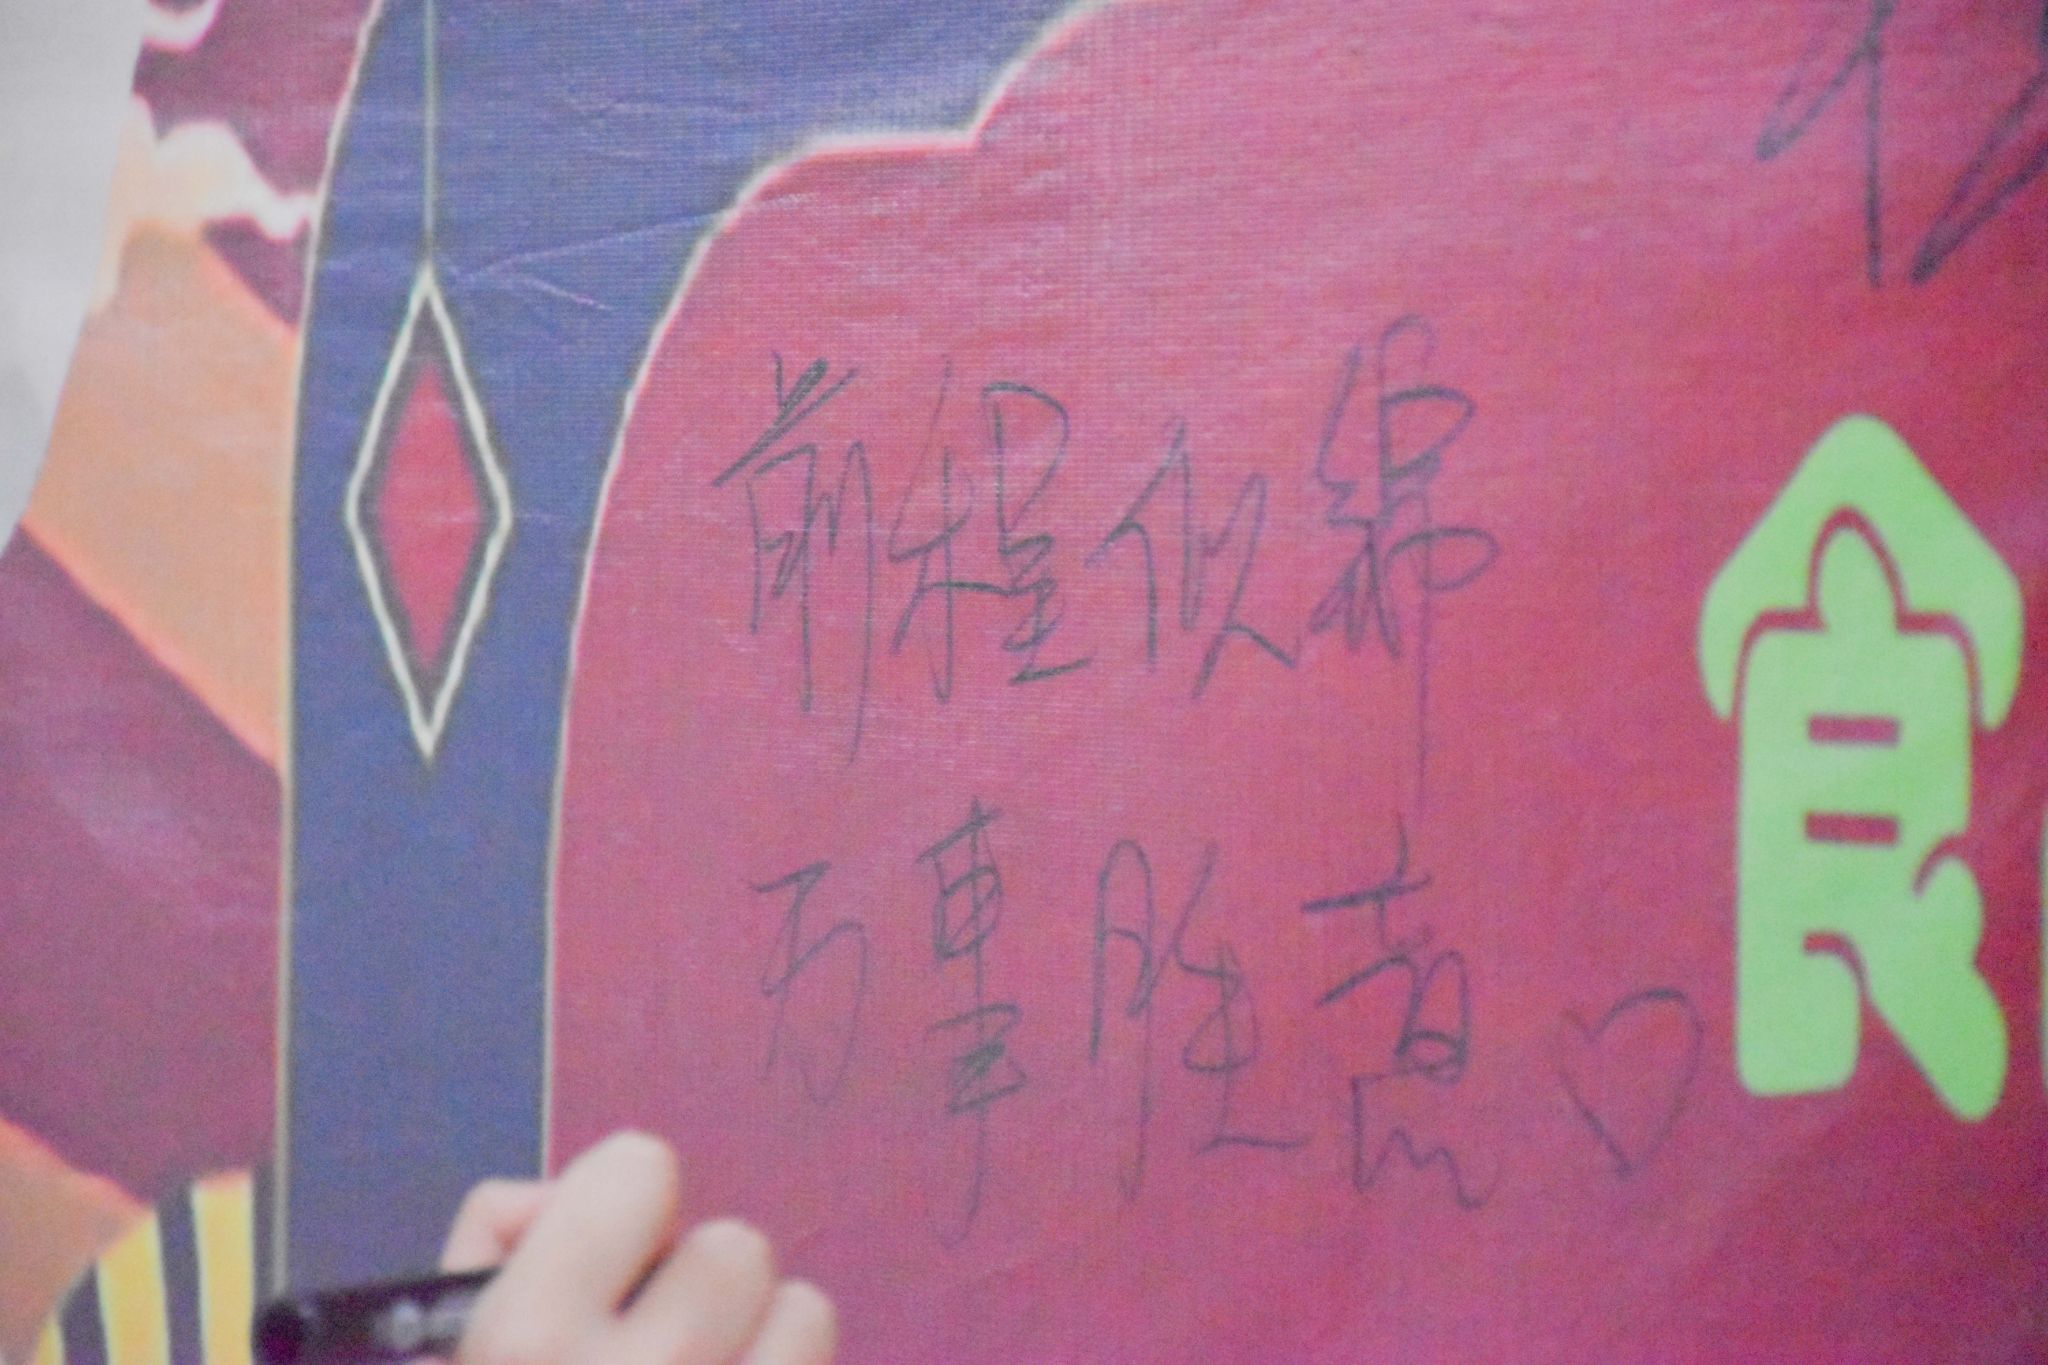 前程似锦
万事胜意♡
食